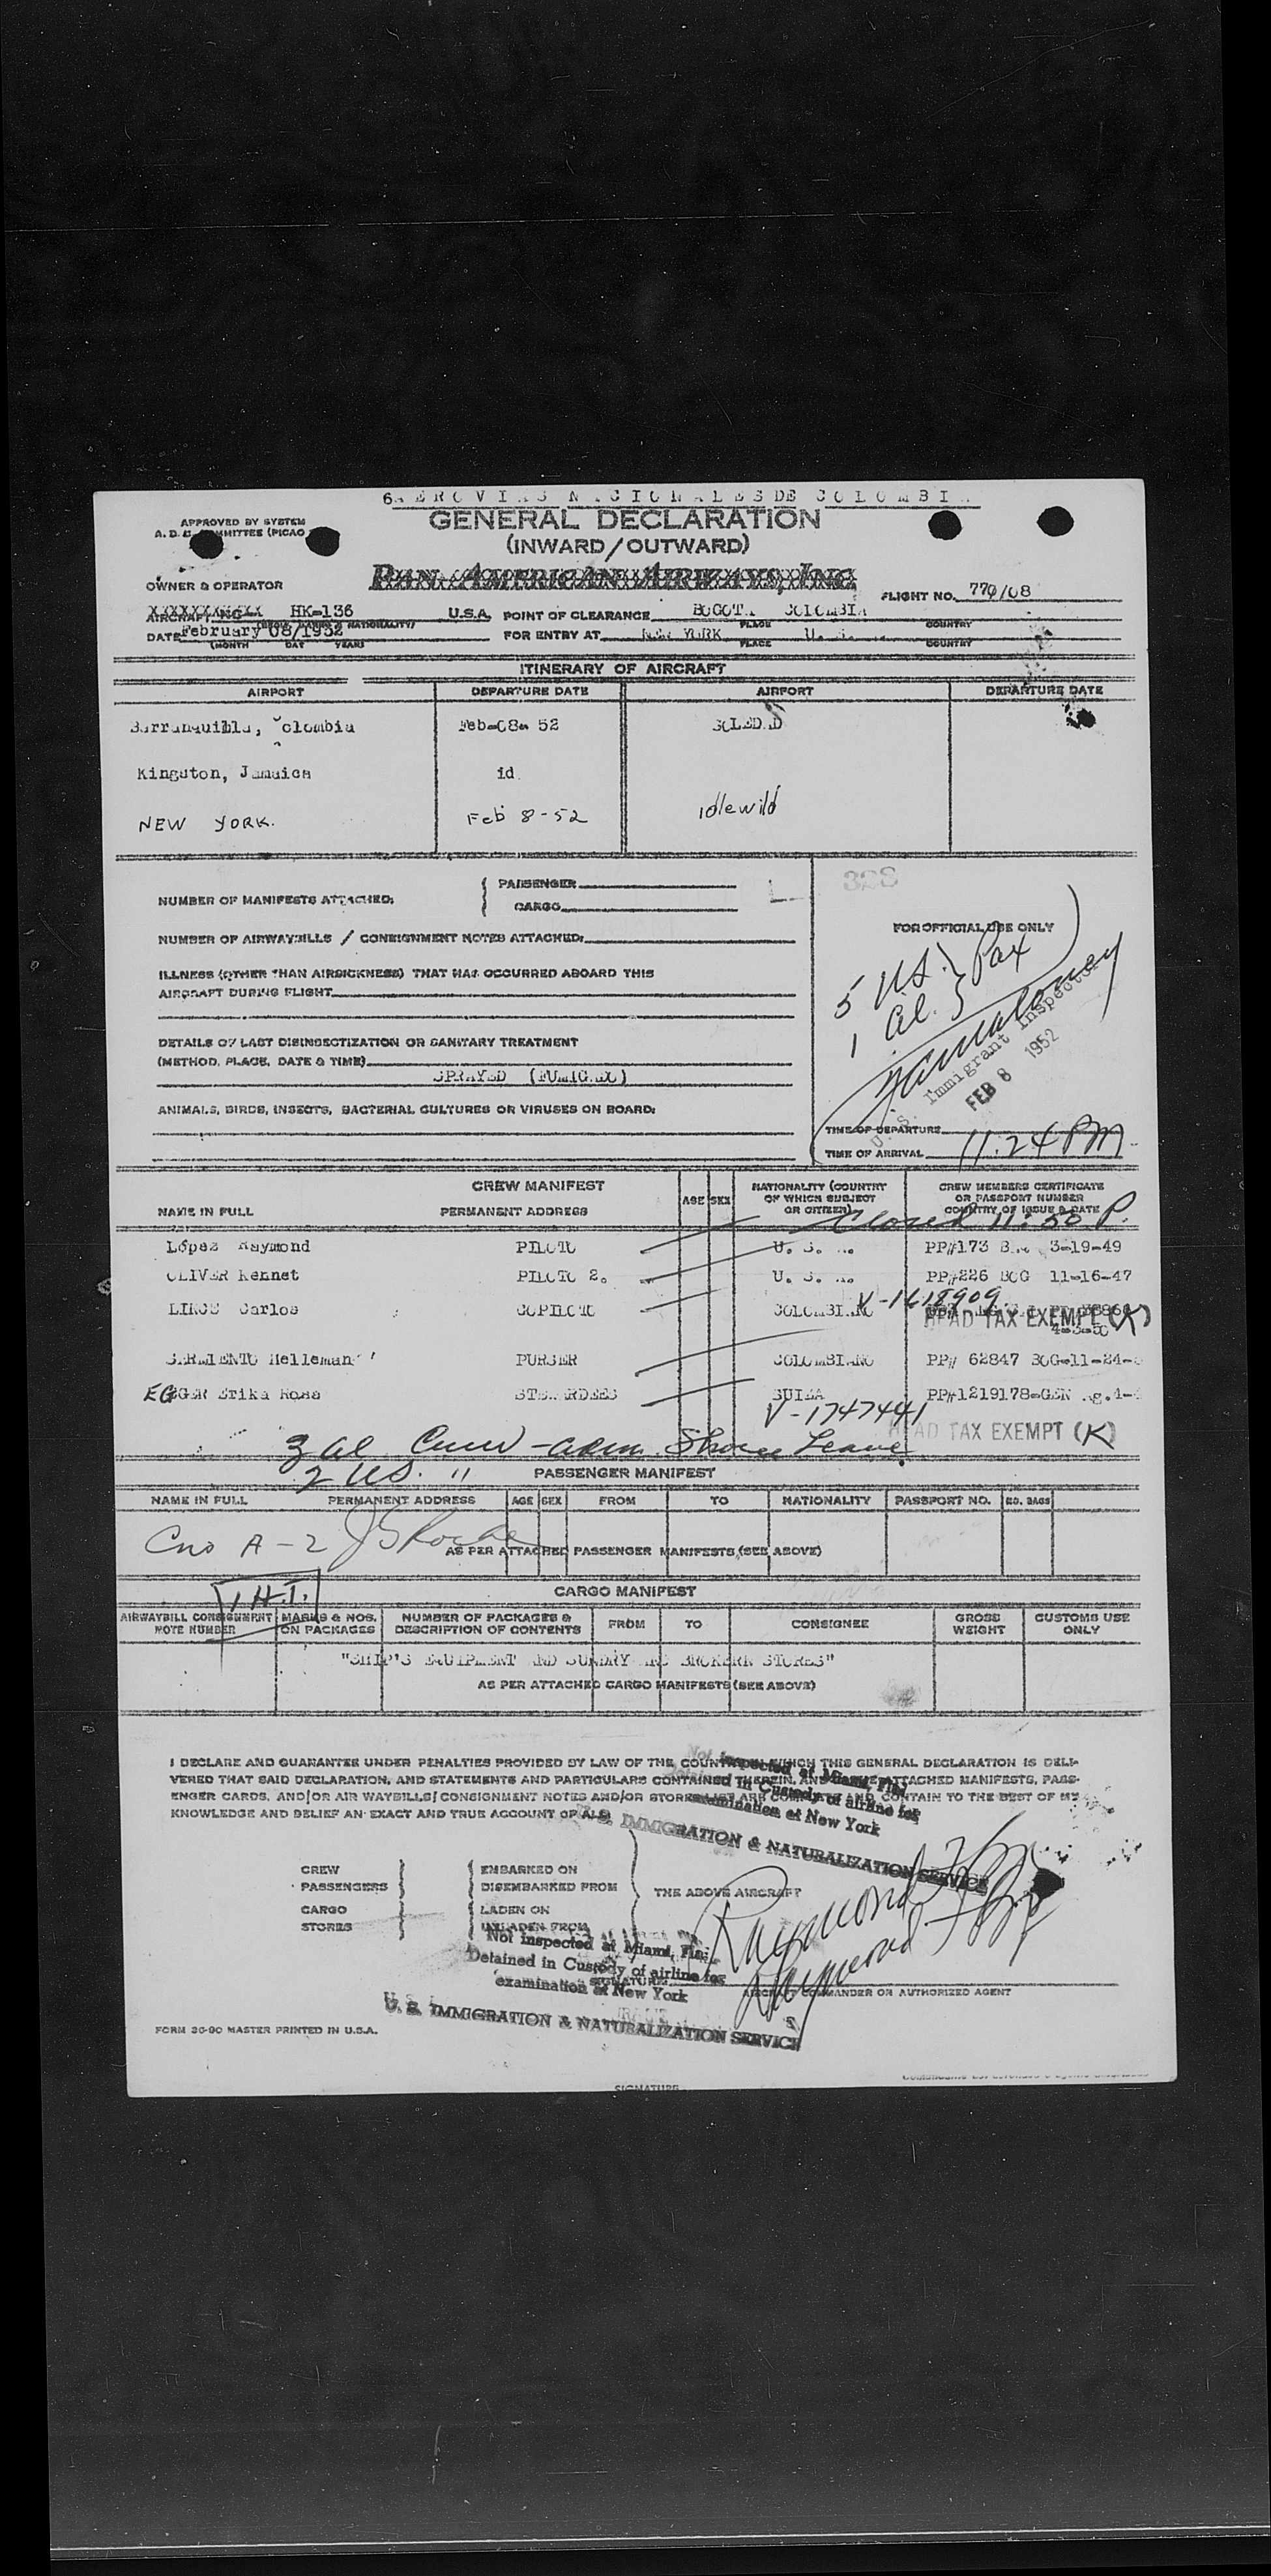 AEROVIAS NACIONALES DE COLOMBIA
APPROVED BY SYSTEM
GENERAL DECLARATION
(INWARD/OUTWARD)
OWNER & OPERATOR PAN AMERICAN AIRWAYS, INC
FLIGHT NO. 770/08
AIRCRAFT HK-136 U.S.A. POINT OF CLEARANCE BOGOTA COLOMBIA
PLACE COUNTRY
DATE February 08/1952 FOR ENTRY AT NEW YORK U. S.
(MONTH DAY YEAR) PLACE COUNTRY
ITINERARY OF AIRCRAFT
AIRPORT DEPARTURE DATE AIRPORT DEPARTURE DATE
Barranquilla, Colombia Feb-08- 52 SOLEDAD
Kingston, Jamaica id
NEW YORK. Feb 8-52 Idlewild
328
NUMBER OF MANIFESTS ATTACHED: { PASSENGER
CARGO
FOR OFFICIAL USE ONLY
NUMBER OF AIRWAYBILLS / CONSIGNMENT NOTES ATTACHED:
5 US. } Pax
1 al.
ILLNESS (OTHER THAN AIRSICKNESS) THAT HAS OCCURRED ABOARD THIS
AIRCRAFT DURING FLIGHT
U. S. Immigrant Inspector
FEB 8 1952
DETAILS OF LAST DISINSECTIZATION OR SANITARY TREATMENT
(METHOD, PLACE, DATE & TIME)
SPRAYED
ANIMALS, BIRDS, INSECTS, BACTERIAL CULTURES OR VIRUSES ON BOARD:
TIME OF DEPARTURE
TIME OF ARRIVAL 11:24 PM
CREW MANIFEST
NAME IN FULL PERMANENT ADDRESS AGE SEX NATIONALITY (COUNTRY OF WHICH SUBJECT OR CITIZEN) CREW MEMBERS CERTIFICATE OR PASSPORT NUMBER COUNTRY OF ISSUE & DATE
Closed 11:50 P.
López Raymond PILOTO U. S. PP#173 3-19-49
OLIVER Kennet PILOTO 2. U. S. PP#226 BOG 11-16-47
V-1618909
Carlos COPILOTO COLOMBIANO
HEAD TAX EXEMPT (K)
4-3-50
SARMIENTO Helleman PURSER COLOMBIANO PP# 62847 BOG-11-24-
EGGER Erika Rosa STEWARDESS SUIZA PP#1219178-GEN
V-1747441
HEAD TAX EXEMPT (K)
3 al Crew - adm. Shore Leave
2 US. "
PASSENGER MANIFEST
NAME IN FULL PERMANENT ADDRESS AGE SEX FROM TO NATIONALITY PASSPORT NO. NO. BAGS
A-2
AS PER ATTACHED PASSENGER MANIFESTS (SEE ABOVE)
CARGO MANIFEST
AIRWAYBILL CONSIGNMENT NOTE NUMBER MARKS & NOS. ON PACKAGES NUMBER OF PACKAGES & DESCRIPTION OF CONTENTS FROM TO CONSIGNEE GROSS WEIGHT CUSTOMS USE ONLY
"SHIP'S EQUIPMENT AND SUNDRY AND BROKERN STORES"
AS PER ATTACHED CARGO MANIFESTS (SEE ABOVE)
I DECLARE AND GUARANTEE UNDER PENALTIES PROVIDED BY LAW OF THE COUNTRY IN WHICH THIS GENERAL DECLARATION IS DELI-
VERED THAT SAID DECLARATION, AND STATEMENTS AND PARTICULARS CONTAINED THEREIN, AND ATTACHED MANIFESTS, PASS-
ENGER CARDS, AND/OR AIR WAYBILLS/CONSIGNMENT NOTES AND/OR STORES LIST ARE COMPLETE AND CONTAIN TO THE BEST OF MY
KNOWLEDGE AND BELIEF AN EXACT AND TRUE ACCOUNT OF ALL
Not inspected at Miami, Fla.
Detained in Custody of airline for
examination at New York
U. S. IMMIGRATION & NATURALIZATION SERVICE
CREW EMBARKED ON
PASSENGERS DISEMBARKED FROM THE ABOVE AIRCRAFT
CARGO LADEN ON
STORES UNLADEN FROM
Not inspected at Miami, Fla.
Detained in Custody of airline for
examination at New York
U. S. IMMIGRATION & NATURALIZATION SERVICE
SIGNATURE
Raymond
Raymond
AIRCRAFT COMMANDER OR AUTHORIZED AGENT
FORM 36-90 MASTER PRINTED IN U.S.A.
SIGNATURE